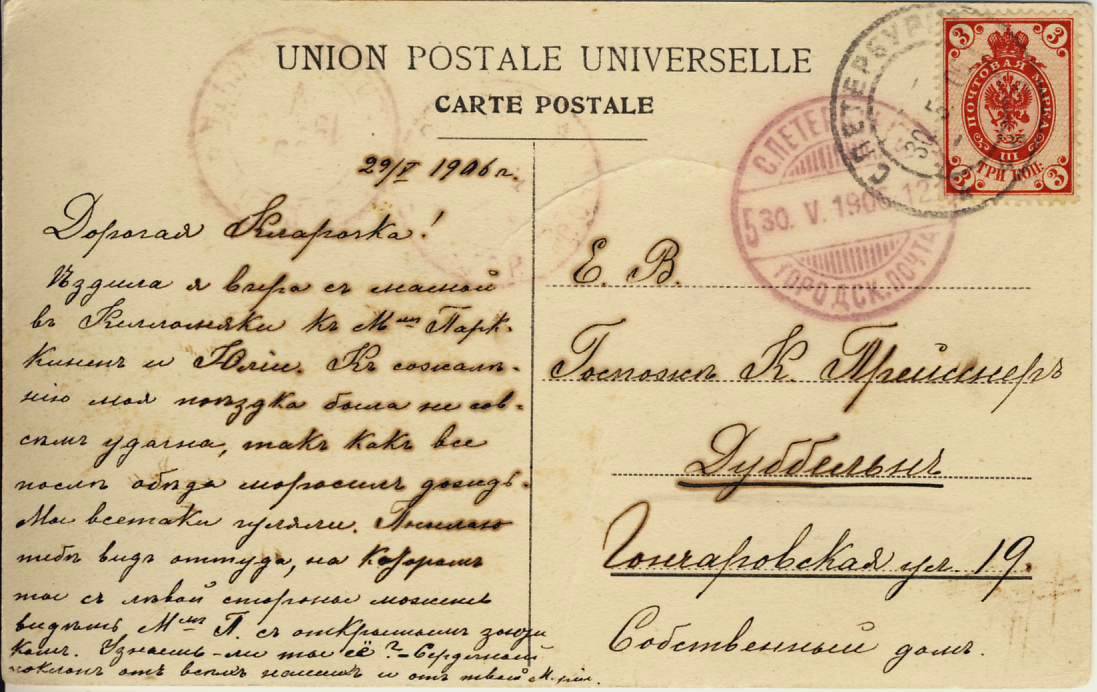 UNION POSTALE UNIVERSELLE
CARTE POSTALE
29/V 1906 г.
Дорогая Кларочка!
Ѣздила я вчера съ мамой
въ Келломяки къ Мме Парк-
киненъ и Юліи. Къ сожалѣ-
нію моя поѣздка была не сов-
сѣмъ удачна, такъ какъ все
послѣ обѣда моросилъ дождь.
Мы всетаки гуляли. Посылаю
тебѣ видъ оттуда, на которомъ
ты съ лѣвой стороны можешь
видѣть Мме П. съ открытымъ зонти
комъ. Узнаешь-ли ты её? - Сердечный
поклонъ отъ всѣхъ нашихъ и отъ твоей
Е. В.
Госпожѣ К. Прейснеръ
Дуббельнъ
Гончаровская ул. 19.
Собственный домъ.
3 3
ПОЧТОВАЯ МАРКА
III
ТРИ КОП.
3 3
С.ПЕТЕРБУРГ
30 5
С.ПЕТЕР
5 30. V. 190 12
ГОРОДСК. ПОЧТА